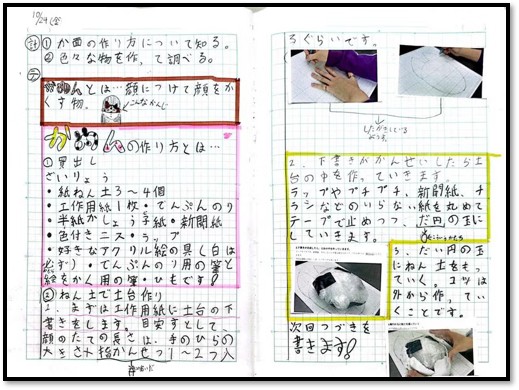 10/24(金)
計①か面の作り方について知る。
②色々な物を作って調べる。
テ
かめんとは…顔につけて顔をか
くす物。
←こんなかんじ
かめんの作り方とは…
①見出し
ざいりょう
・紙ねん土3〜4個
・工作用紙1枚・でんぷんのり
・半紙かしょう子紙・新聞紙
・色付きニス・ラップ
・好きなアクリル絵の具(白は
必ず)・でんぷんのり用の筆と
絵をかん用の筆・ひもです!
②ねん土で土台作り
1、まずは工作用紙に土台の下
書きをします。目安として、
顔のたての長さは、手のひらの
大きさ+指かんせつ1〜2つ入
ろぐらいです。
したがきしている
2、下書きがかんせいしたら土
台の中を作っていきます。
ラップやプチプチ、新聞紙、チ
ラシなどのいらない紙を丸めて
テープで止めつつ、だ円の玉に
していきます。
3、だい円の玉
にねん土をもっ
ていく。コツは
外から作ってい
くことです。
次回つづきを
書きます!